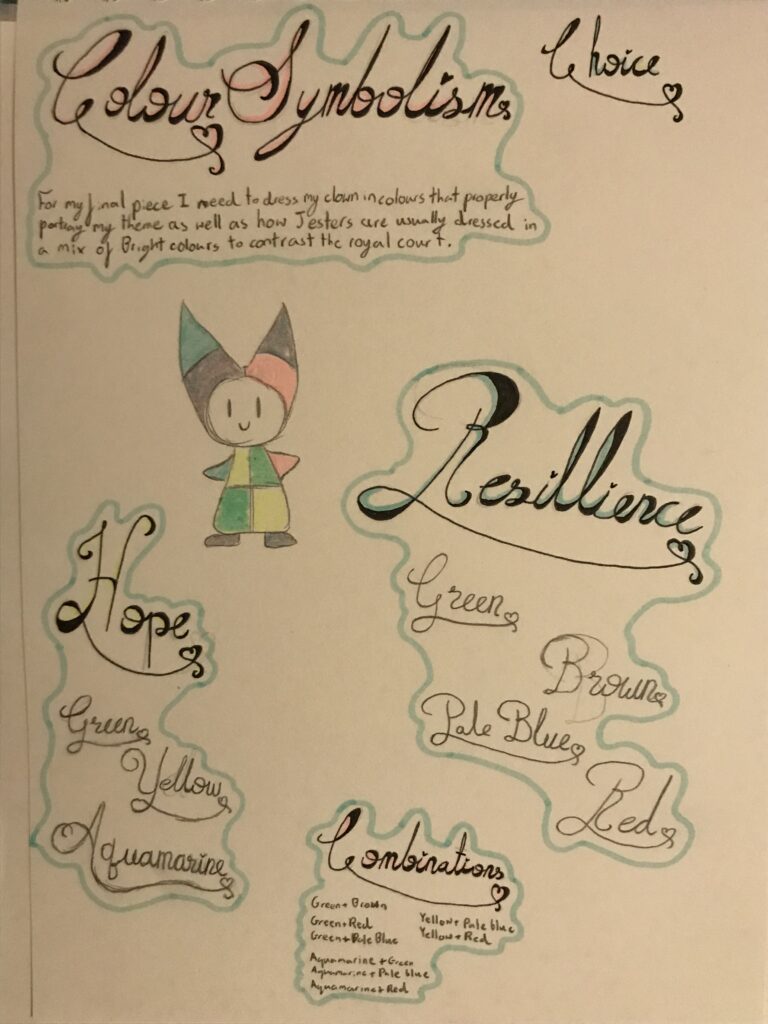 Colour Symbolism
Choice
For my final piece I need to dress my clown in colours that properly
portray my theme as well as how Jesters are usually dressed in
a mix of Bright colours to contrast the royal court.
Resillience
Green
Brown
Pale Blue
Red
Hope
Green
Yellow
Aquamarine
Combinations
Green + Brown
Green + Red
Green + Pale Blue
Yellow + Pale blue
Yellow + Red
Aquamarine + Green
Aquamarine + Pale blue
Aquamarine + Red